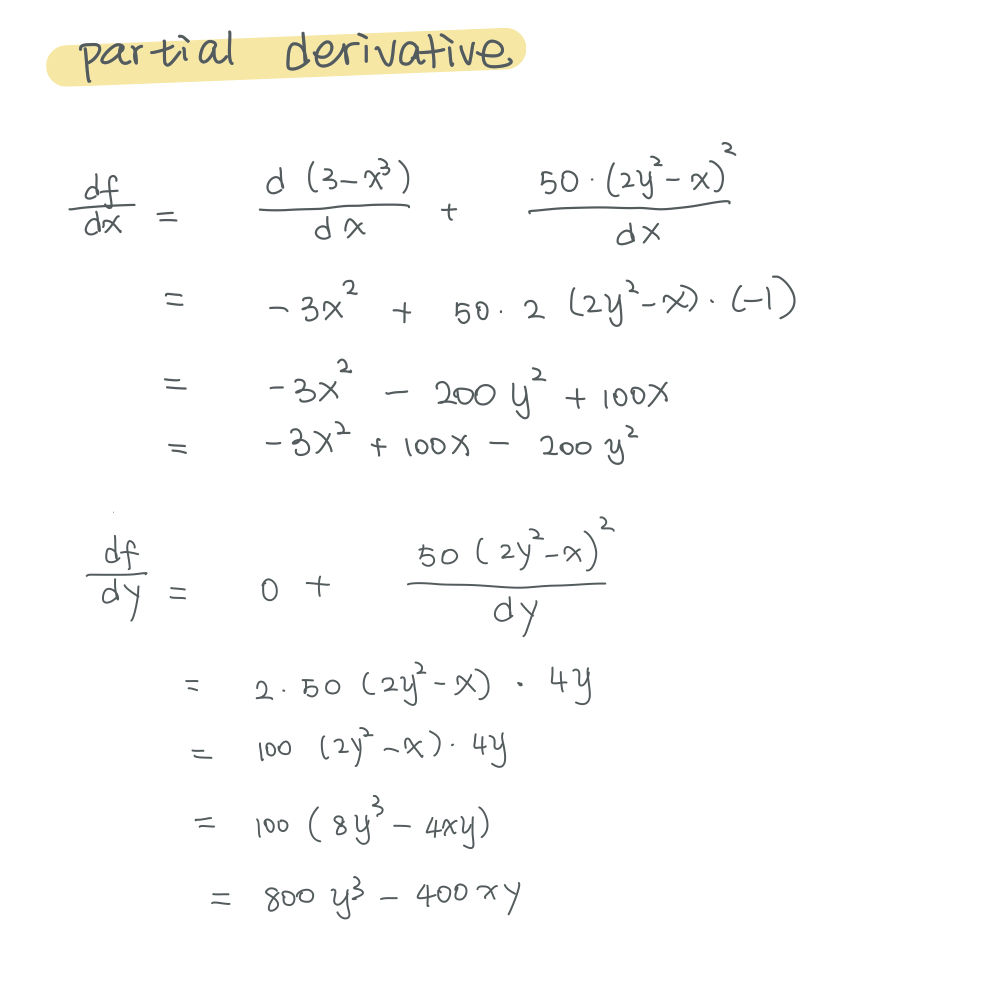 partial derivative
df/dx = d (3-x³)/dx + 50·(2y²-x)²/dx
= -3x² + 50·2 (2y²-x)·(-1)
= -3x² - 200y² + 100x
= -3x² + 100x - 200y²
df/dy = 0 + 50(2y²-x)²/dy
= 2·50 (2y²-x) · 4y
= 100 (2y²-x)·4y
= 100 (8y³ - 4xy)
= 800y³ - 400xy